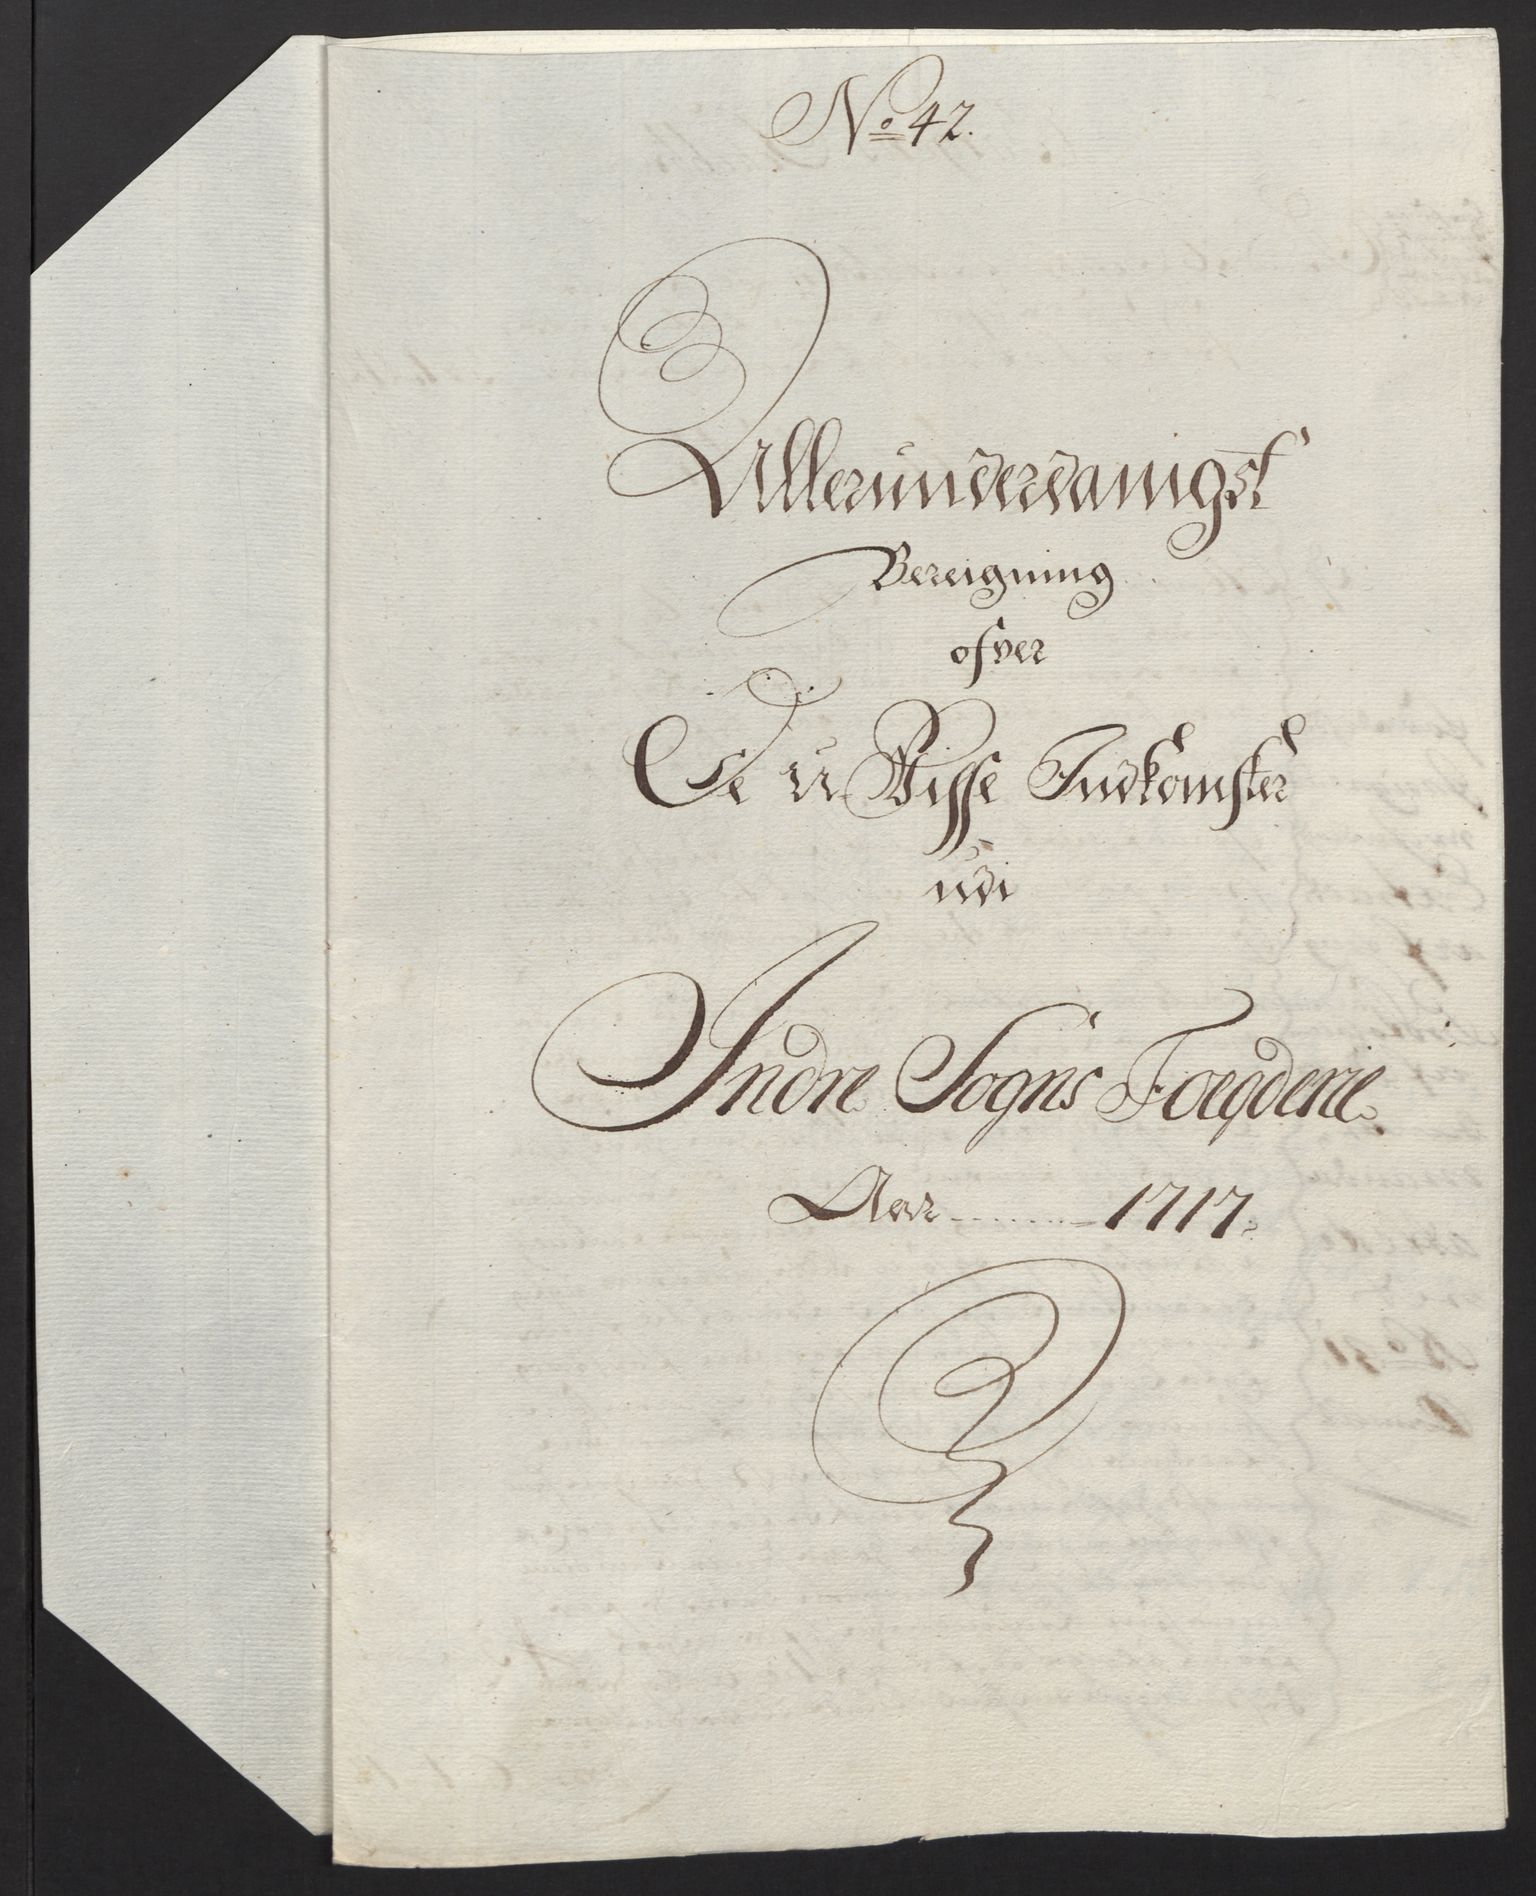 No 42.
Allerunderdanigst
Bereigning
ofver
De U Visse Indkomster
udi
Indre Sogns Foegderie
Aar ........ 1717.